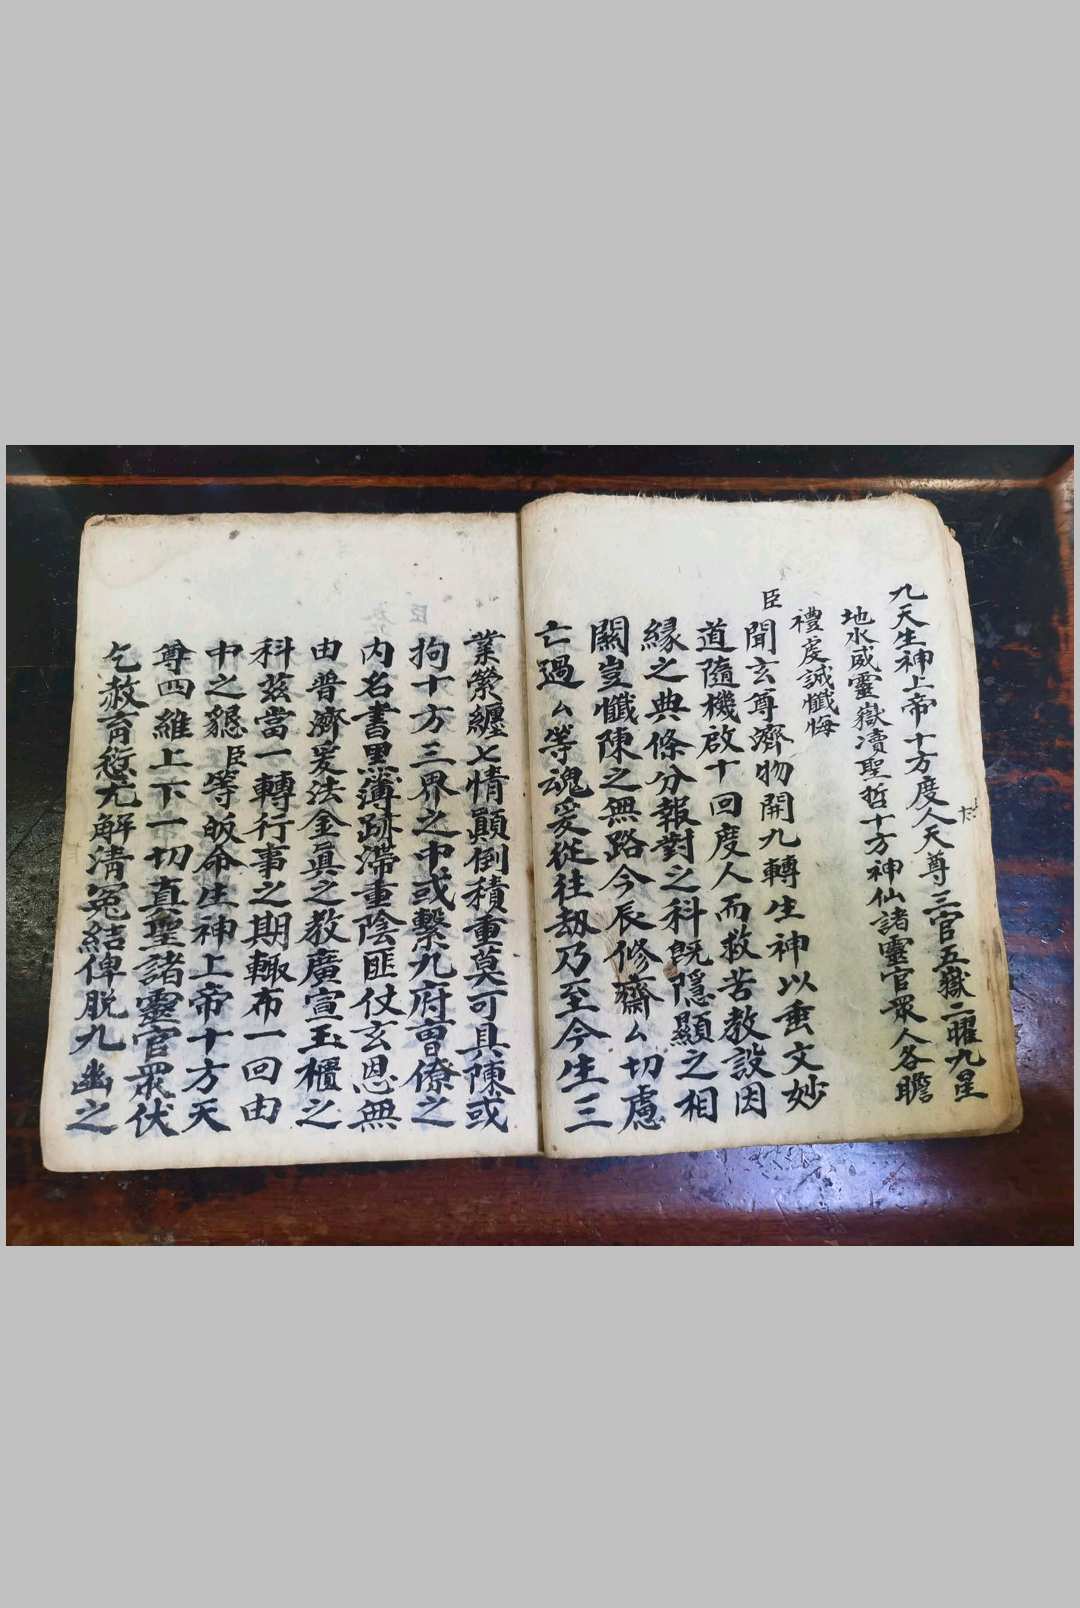 九天生神上帝十方度人天尊三官五嶽二曜九星
地水咸靈嶽瀆聖哲十方神仙諸靈官眾人各瞻
禮虔誠懺悔
臣聞玄尊濟物開九轉生神以垂文妙
道隨機啟十回度人而救苦教設因
緣之典條分報對之科既隱顯之相
關豈懺陳之無路今辰修齋厶切慮
亡過厶等魂爰從往劫乃至今生三
業縈纏七情顛倒積重莫可具陳或
拘十方三界之中或繫九府曹僚之
內名書黑薄跡滯重陰匪仗玄恩無
由普濟爰法金真之教廣宣玉櫃之
科茲當一轉行事之期輙布一回由
中之懇臣等皈命生神上帝十方天
尊四維上下一切真聖諸靈官眾伏
乞赦宥愆尤解清冤結俾脫九幽之